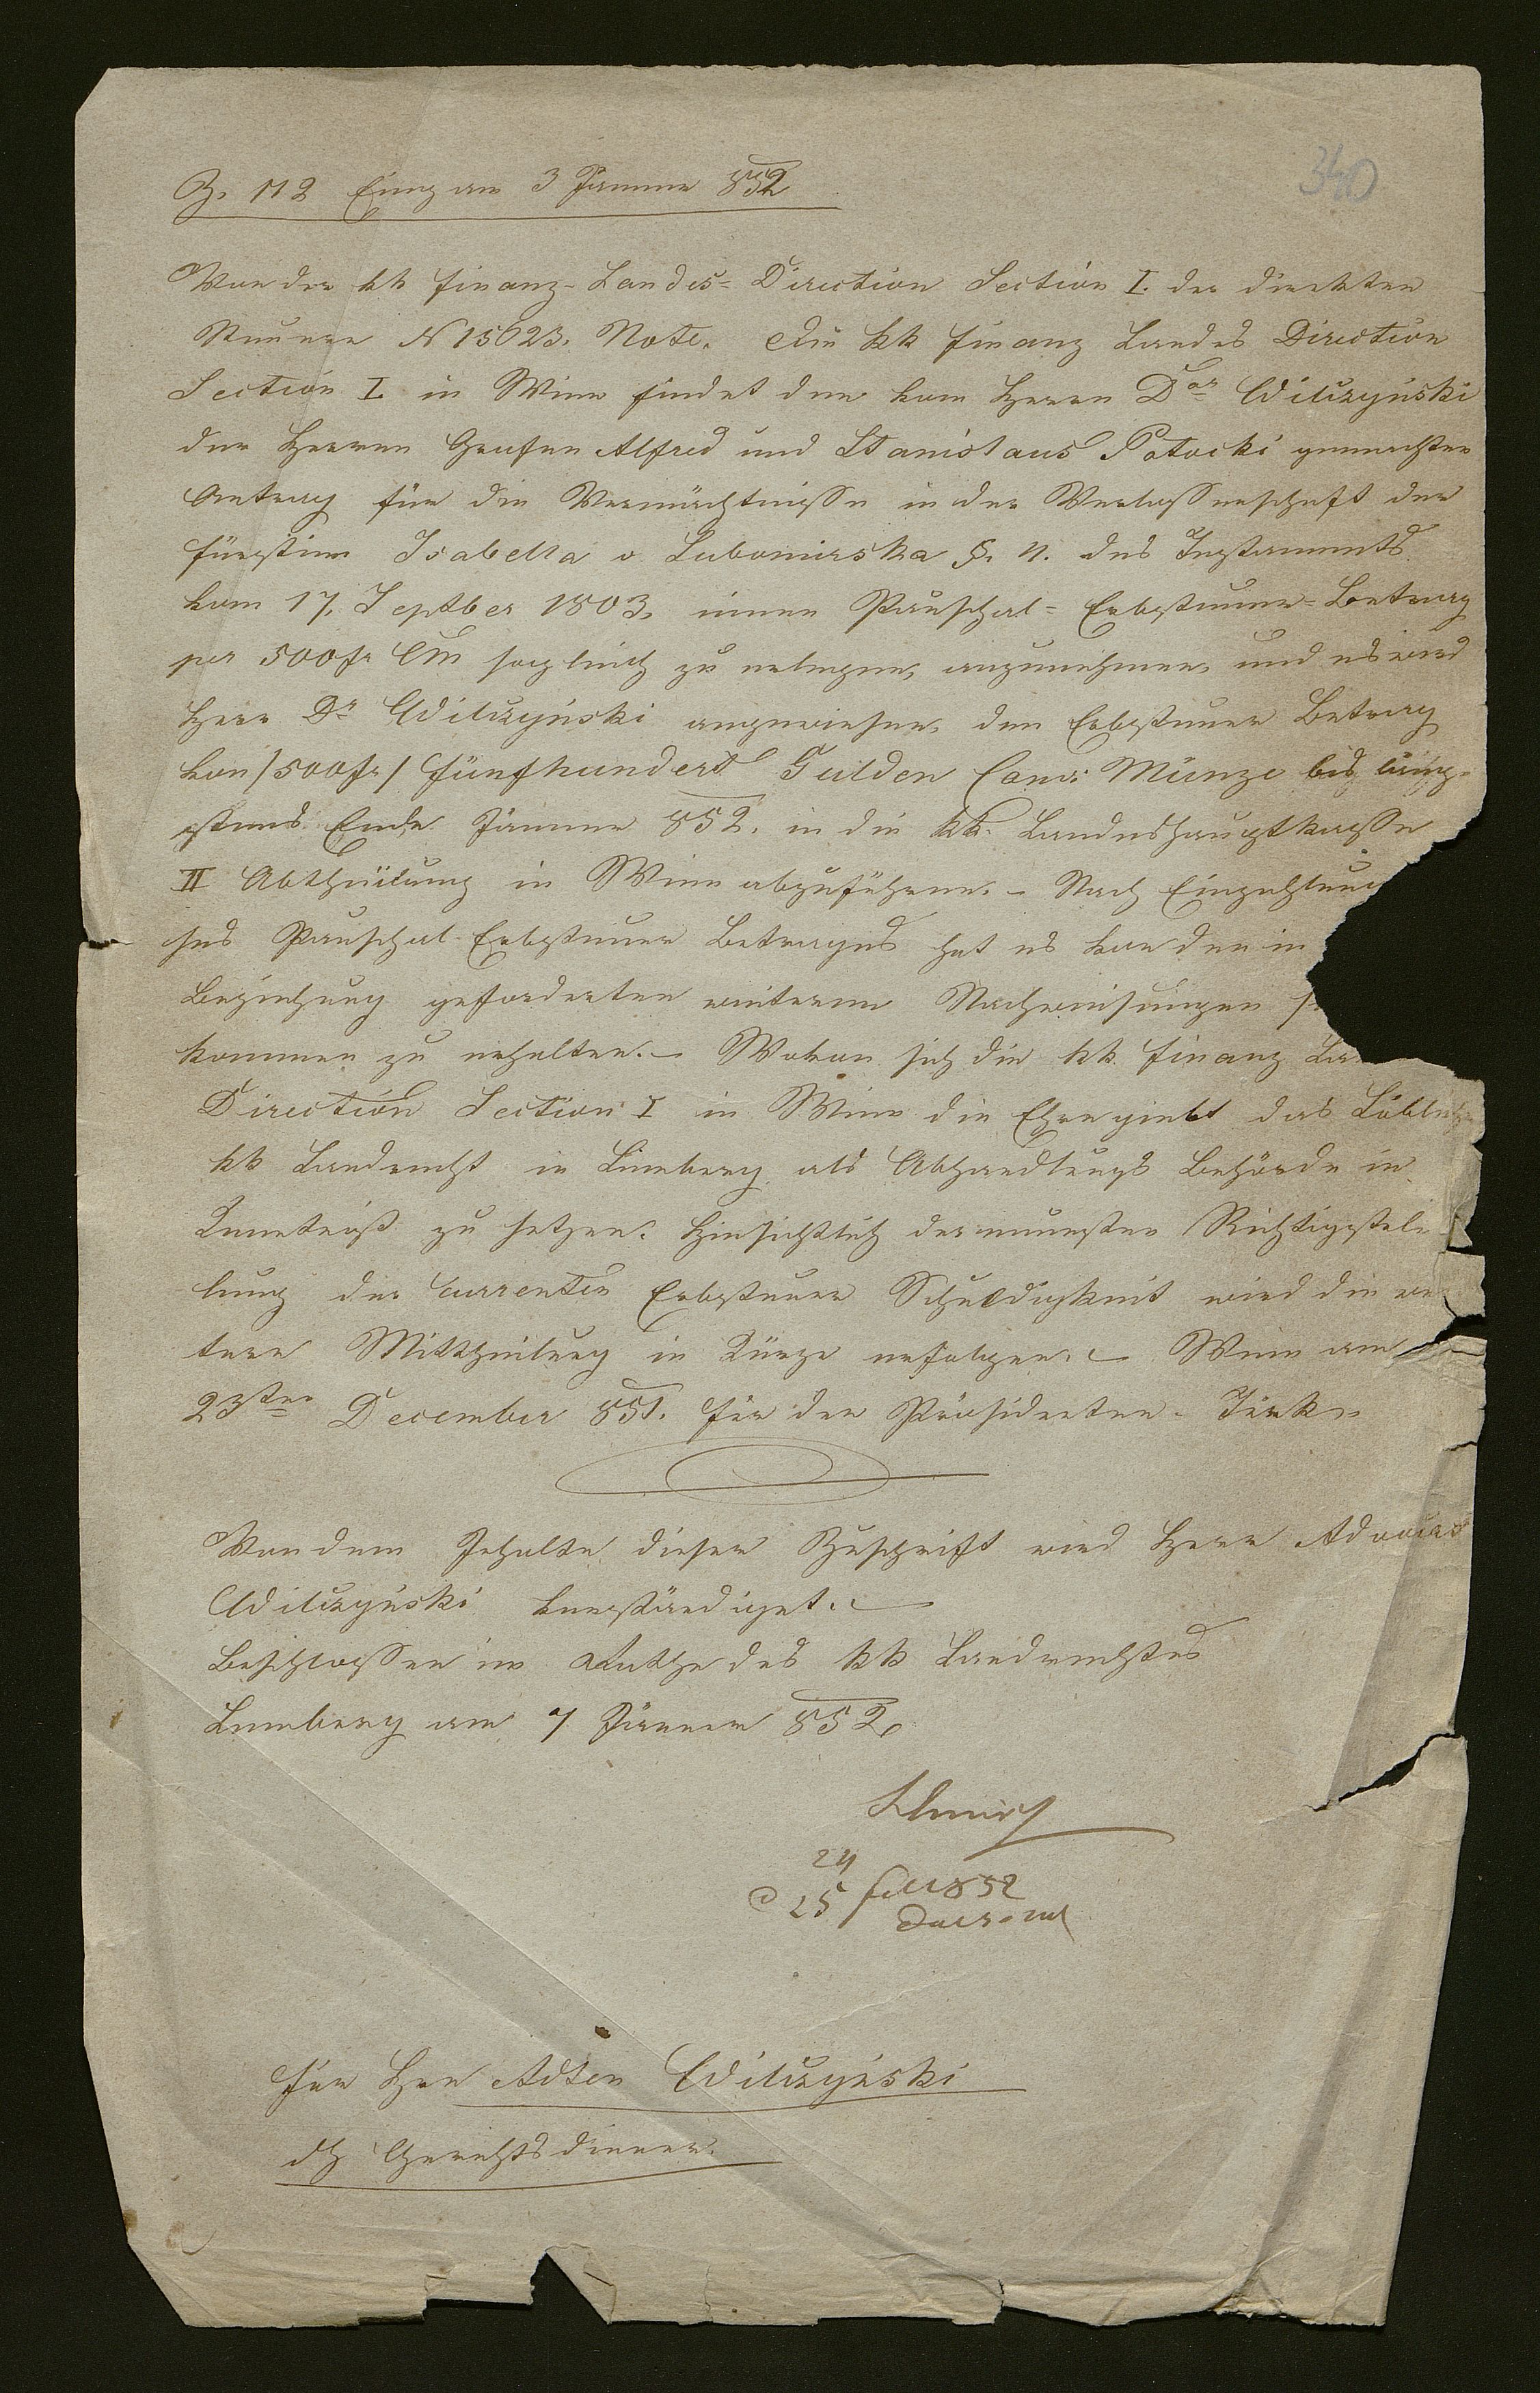 340
Z. 112 Eing am 3 Jänner 852
Von der kk Finanz-Landes-Direction Section I. der direkten
Steuern N 15023. Note. Die kk Finanz Landes Direction
Section I. in Wien findet den vom Herrn Dor Wilczyński
der Herren Grafen Alfred und Stanislaus Potocki gemachten
Antrag für die Vermächtnisse in der Verlassenschaft der
Fürstinn Isabella v Lubomirska §. 11. des Testaments
vom 17. Septber 1803. einen Pauschal-Erbsteuer-Betrag
per 500 fr CM sogleich zu erlegen, anzunehmen, und es wird
Herr Dr Wilczyński angewiesen, den Erbsteuer Betrag
von /500 fr/ Fünfhundert Gulden Conv: Münze bis läng-
stens Ende Jänner 852. in die kk. Landeshauptkasse
II Abtheilung in Wien abzuführen. – Nach Einzahlung
ses Pauschal-Erbsteuer Betrages hat es von den in
Beziehung geforderten weiteren Nachweisungen
kommen zu erhalten. – Wovon sich die kk. Finanz La
Direction Section I in Wien die Ehre giebt das Löbliche
kk Landrecht in Lemberg als Abhandlungs Behörde in
Kenntniß zu setzen. Hinsichtlich der neuesten Richtigstel-
lung der currenten Erbsteuer Schuldigkeit wird die we
tere Mittheilung in Kürze erfolgen. – Wien am
23ten December 851. Für den Präsidenten –
Von dem Inhalte dieser Zuschrift wird Herr Advocat
Wilczyński verständiget. –
Beschlossen im Rathe des kk Landrechtes
Lemberg am 7 Jänner 852.
24
25 852
Für Hrn Adten Wilczyński
dh Gerichtsdiener.